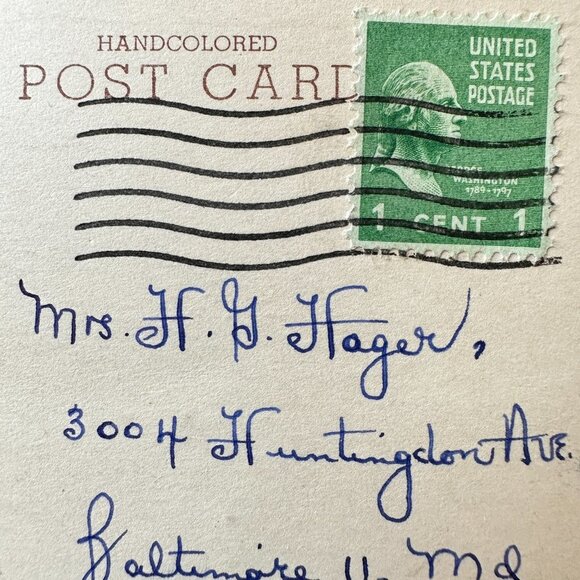 HANDCOLORED
POST CARD
UNITED
STATES
POSTAGE
GEORGE
WASHINGTON
1789-1797
1 CENT 1
Mrs. H. G. Hager,
3004 Huntingdon Ave.
Baltimore 11, Md